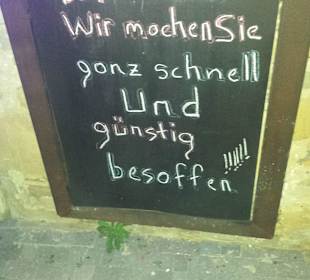 Wir mochen Sie
gonz schnell
Und
günstig
besoffen !!!!!